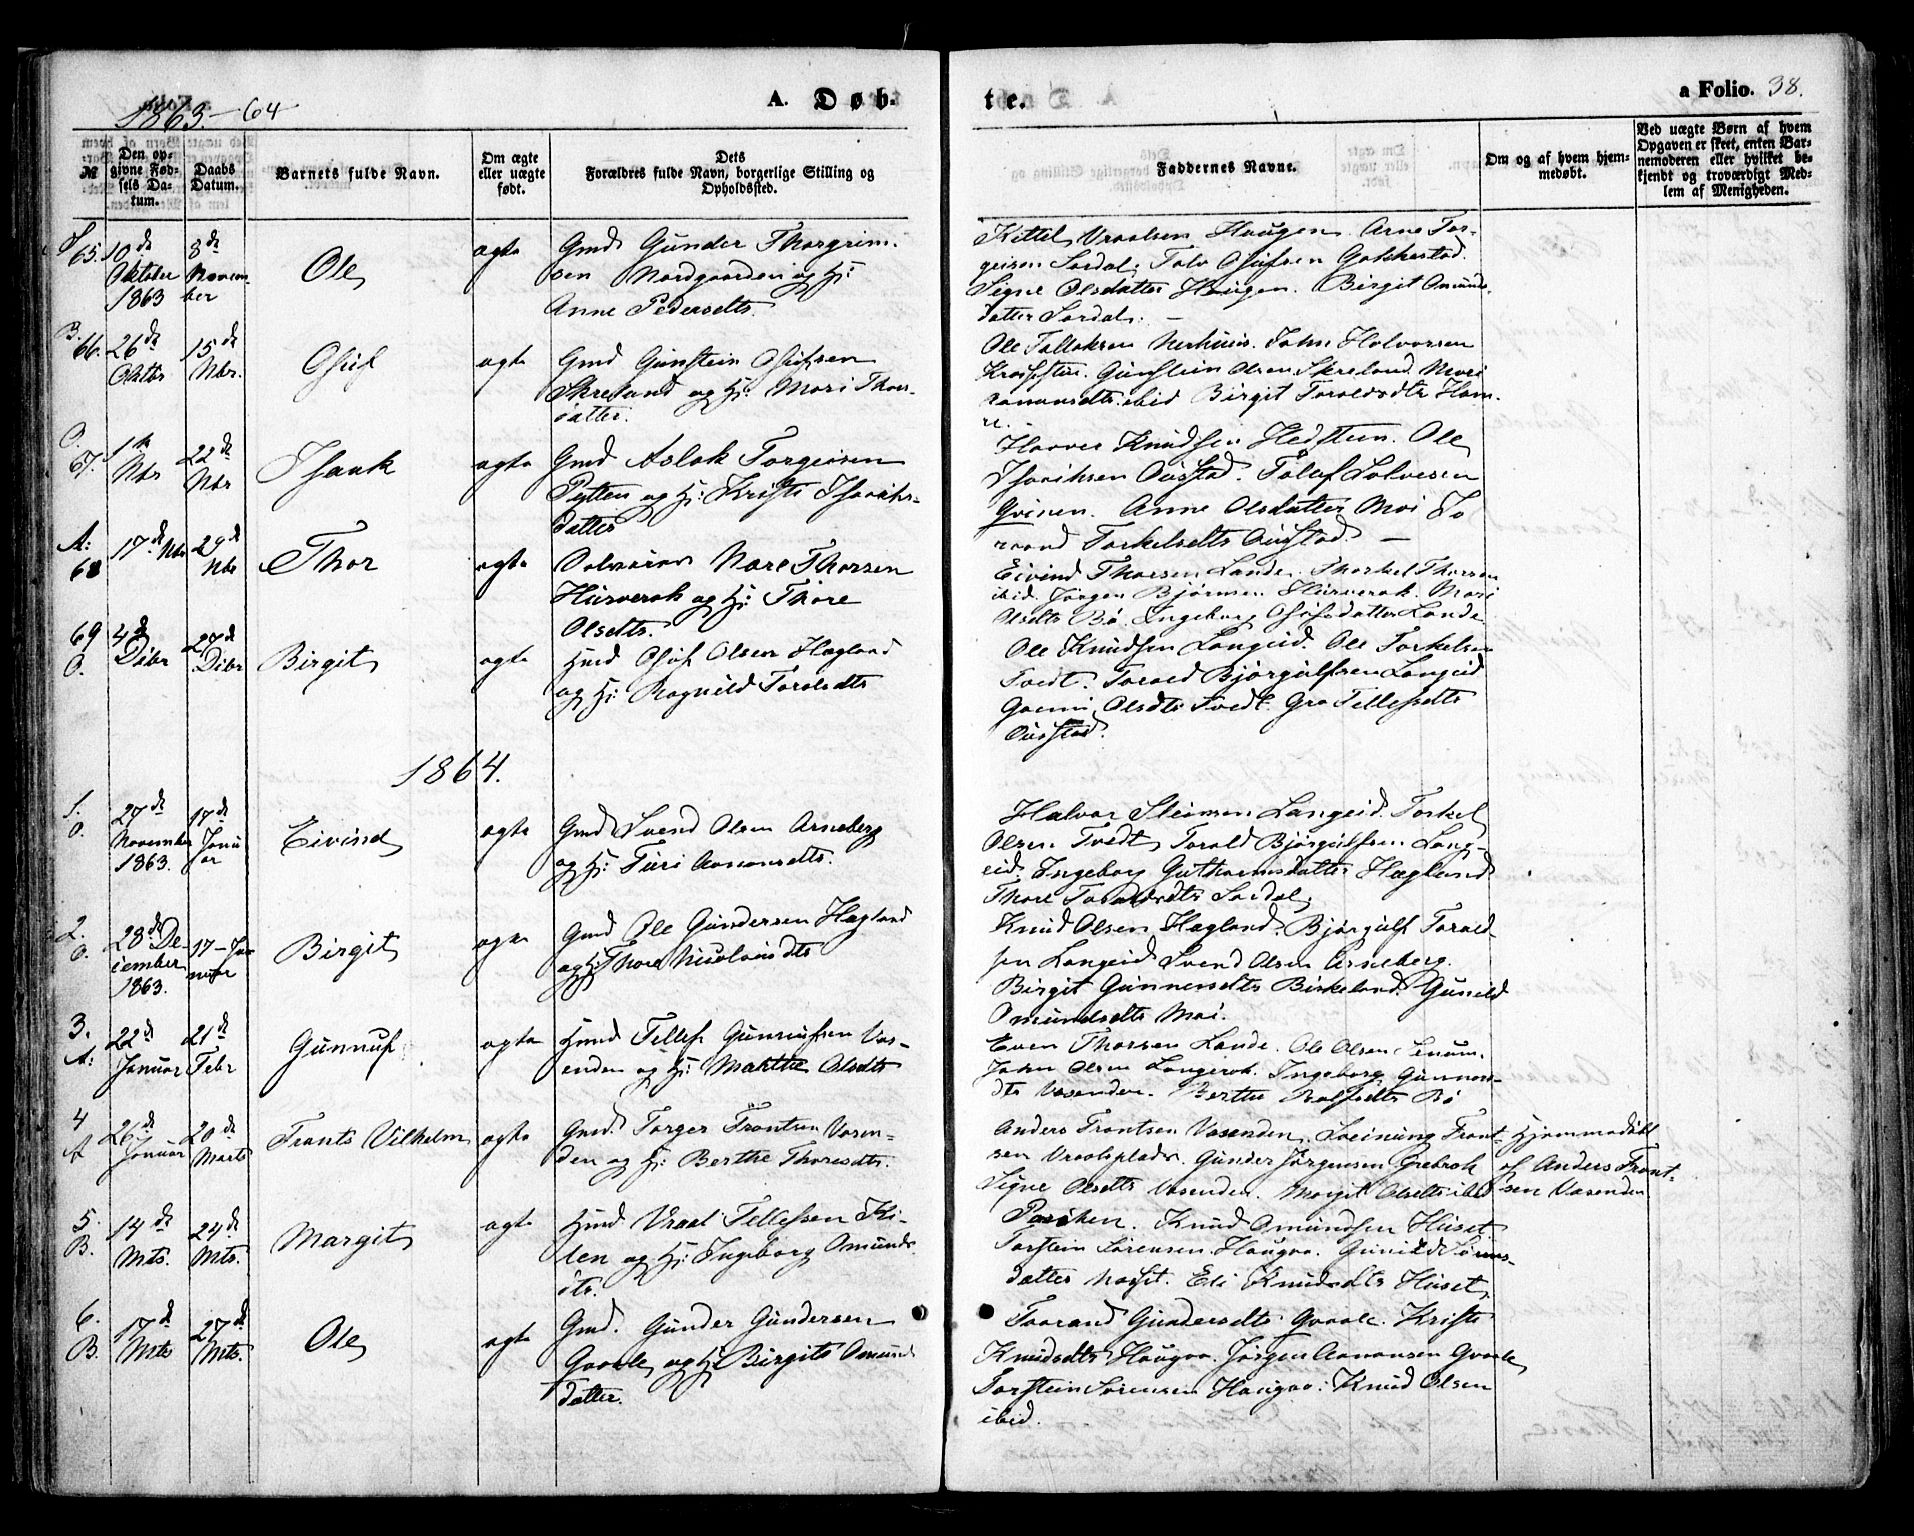 1863.-64
A. Døb-
te.
a Folio. 38.
№
Den op-
givne Fød-
sels Da-
tum.
Daabs
Datum.
Barnets fulde Navn.
Om ægte
eller uægte
født.
Dets
Forældres fulde Navn, borgerlige Stilling og
Opholdssted.
Faddernes Navne.
Om og af hvem hjem-
medøbt.
Ved uægte Børn af hvem
Opgaven er skeet, enten Bar-
nemoderen eller hvilket be-
kjendt og troværdigt Med-
lem af Menigheden.
65. 10de Oktober 1863
8de November
Ole
ægte
Gmd Gunder Thorgrim-
sen Nordgaarden og Hu:
Anne Pedersdtr.
Kittel Vraalsen Haugen. Arne Tor-
geisen Sordal. Talv Osufsen
Signe Olsdatter Haugen. Birgit Omunds-
datter Sordal. —
B. 66. 26de Oktbr
15de Nbr.
Osuf
ægte
Gmd Gunstein Osufsen
Skreland og H: Mari Thors-
datter.
Ole Tallaksen Nerhuus. John Halvorsen
Gunstein Olsen Skreland. Mari
Aanonsdtr. ibid Birgit Toraldsdtr Ham-
re.
O. 67. 1te Nbr
22de Nbr
Isaak
ægte
Gmd Aslak Torgeirsen
Pytten og H: Kristi Isaaks-
datter
Haavor Knudsen Hedsteen. Ole
Isaaksen Ousstad. Tolof Salvesen
Anne Olsdatter Moi To
raand Torkelsdtr Ousstad. —
A: 68 17de Nbr
29de Nbr
Thor
ægte
Nare Thorsen
Hurverak og H: Thore
Olsdtr.
Eivind Thorsen Lande. Thorkel Thorsen
ibid. Jörgen Bjørnsen Hurverak. Mari
Olsdtr Bö. Ingeborg Osufsdatter Lande
69 O. 4de Decbr
27de Decbr
Birgit
ægte
Hmd Osuf Olsen Hægland
og H: Ragnild Toraldsdtr
Ole Knudsen Langeid. Ole Torkelsen
Tvedt. Torald Bjørgulfsen Langeid
Gunni Olsdtr Tvedt. Gro Tellefsdtr
Ousstad.
1864.
1. O. 27de November 1863.
17de Januar
Eivind
ægte
Gmd Svend Olsen Arneberg
og H: Turi Aanonsdtr.
Halvor Steinsen Langeid. Torkel
Olsen Tvedt, Torald Bjørgulfsen Lang-
eid. Ingeborg Guthormsdatter Hægland
Thore Toraldsdtr Sordal.
2. O. 28de December 1863.
17-Januar
Birgit
ægte
Gmd Ole Gundersen Hægland
og H: Thore
Knud Olsen Hægland. Bjørgulf Torald-
sen Langeid Svend Olsen Arneberg.
Birgit Gunnersdtr Birkeland. Gunild
Omundsdtr Moi.
3. A: 22de Januar
21de Febr
Gunnuf
ægte
Hmd Tellef Gunnufsen Vas-
enden og H: Marthe Olsdtr
Even Thorsen Lande. Ole Olsen Senum.
John Olsen Langerak. Ingeborg Gunnars-
dtr Vasenden. Berthe Rolfsdtr Bö
4 A 26de Januar
20de Marts
Tronts Vilhelm
ægte
Gmd. Torger Trontsen Vasen-
den og H: Berthe Thoresdtr.
Anders Trontsen Vasenden. Sveinung Tront-
sen Vraalsplads. Gunder Jørgensen Grebrok
Signe Olsdtr Vasenden. Margit Olsdtr ibid
Hjemmedöbt
af Anders Tront-
sen Vasenden.
5. B. 14de Mts.
24de Mts.
Margit
ægte
Hmd Vraal Tellefsen Ki-
len og H: Ingeborg Omunds-
dtr.
Knud Omundsen Huset
Torstein Sörensen Haugaa. Gunild Sörens-
datter Huset. Eli Knudsdtr Huset.
6. B. 17de Mts
27de Mts.
Ole
ægte
Gmd. Gunder Gundersen
Gvaale og H: Birgit Omunds
datter.
Taarand Gundersdtr Gvaale. Kristi
Knudsdtr Haugaa. Jörgen Aanonsen Gvaale
Torstein Sörensen Haugaa. Knud Olsen
ibid.